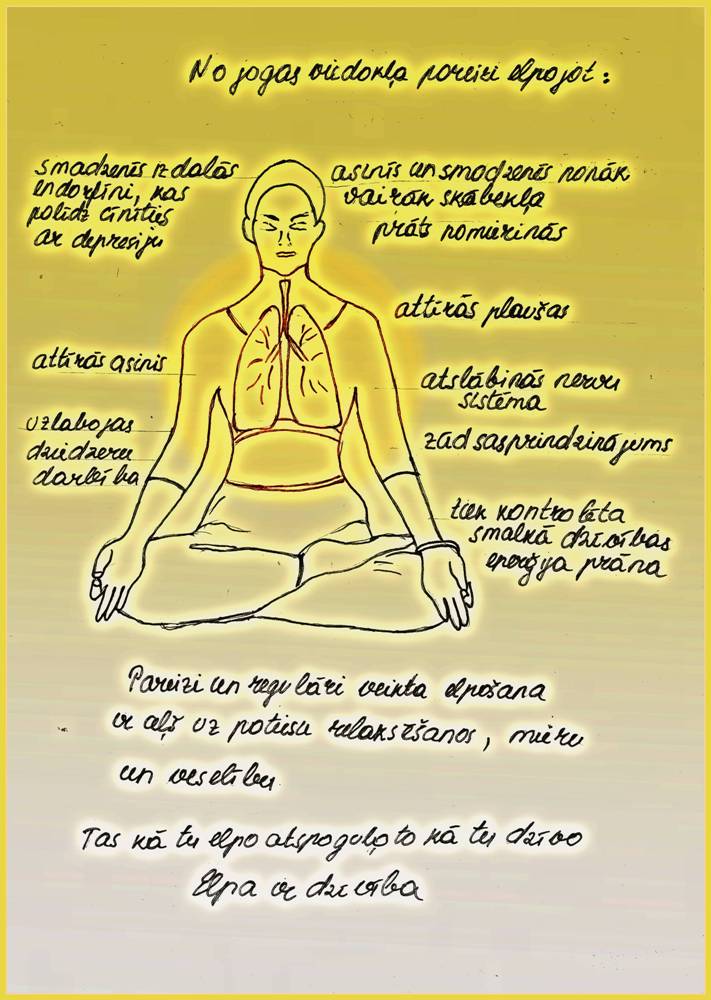 No jogas viedokļa pareizi elpojot:
smadzenīs izdalās
endorfīni, kas
palīdz cīnīties
ar depresiju
asinīs un smadzenēs nonāk
vairāk skābekļa
prāts nomierinās
attīrās plaušas
attīrās asinis
atslābinās nervu
sistēma
uzlabojas
dziedzeru
darbība
zūd sasprindzinājums
tiek kontrolēta
smalkā dzīvības
enerģija prāna
Pareizi un regulāri veikta elpošana
ir ceļš uz patiesu relaksēšanos, mieru
un veselību
Tas kā tu elpo atspoguļo to kā tu dzīvo
Elpa ir dzīvība